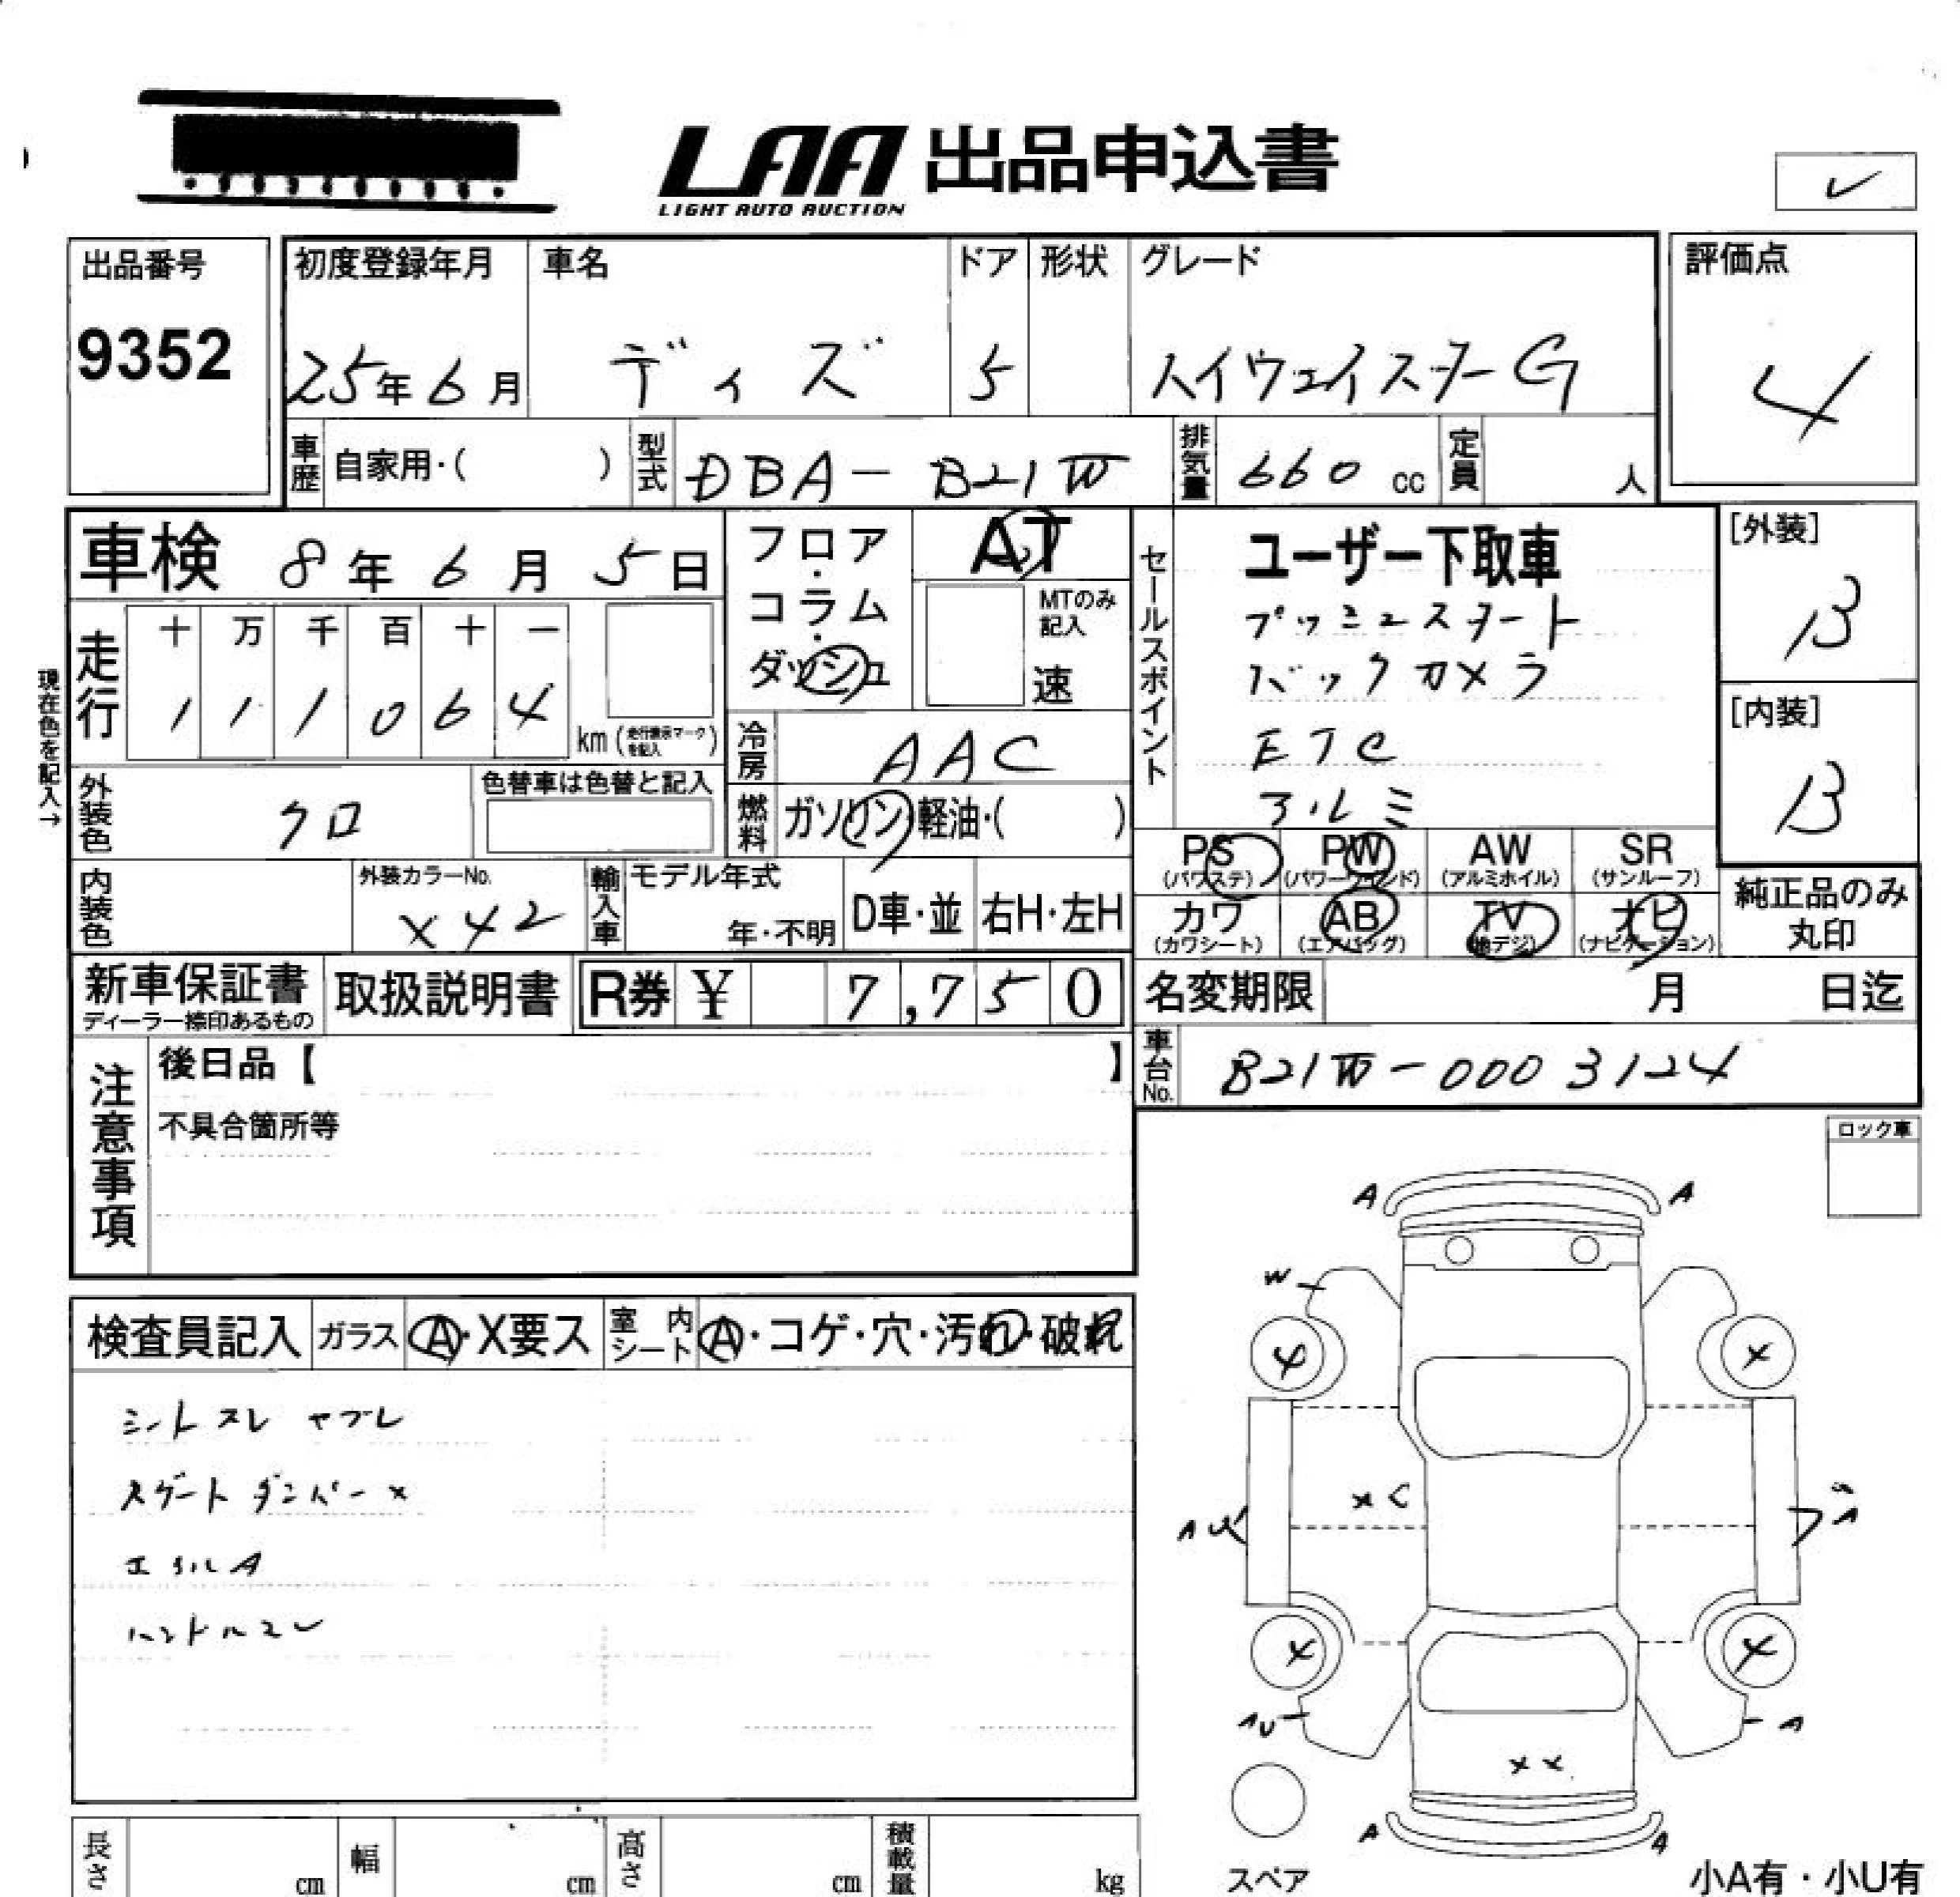 LAA 出品申込書
LIGHT AUTO AUCTION
出品番号 9352
初度登録年月 25年6月
車名 ディズ
ドア 5
形状
グレード ハイウェイスターG
評価点 4
車歴 自家用・( )
型式 DBA-B21W
排気量 660 cc
定員 人
車検 8年6月5日
フロア・コラム・ダッシュ
AT
MTのみ記入
速
セールスポイント
ユーザー下取車
プッシュスタート
バックカメラ
ETC
アルミ
[外装] B
[内装] B
現在色を記入→
走行
十 万 千 百 十 一
1 1 1 0 6 4
km (走行表示マークを記入)
冷房 AAC
燃料 ガソリン・軽油・( )
外装色 クロ
色替車は色替と記入
内装色
外装カラーNo. X42
輸入車
モデル年式
年・不明
D車・並
右H・左H
PS (パワステ)
PW (パワーウインド)
AW (アルミホイル)
SR (サンルーフ)
カワ (カワシート)
AB (エアバッグ)
TV (地デジ)
ナビ (ナビゲーション)
純正品のみ丸印
新車保証書
ディーラー捺印あるもの
取扱説明書
R券 ¥ 7,750
名変期限 月 日迄
車台No. B21W-0003124
注意事項
後日品【 】
不具合箇所等
ロック車
検査員記入
ガラス A・X要ス
室内シート A・コゲ・穴・汚れ・破れ
シートスレ ヤブレ
Rゲートダンパー×
エクルA
ハンドルスレ
A A
W
4 X
X C
A U A
X X
AU A
X X
A A
スペア
長さ cm
幅 cm
高さ cm
積載量 kg
小A有・小U有